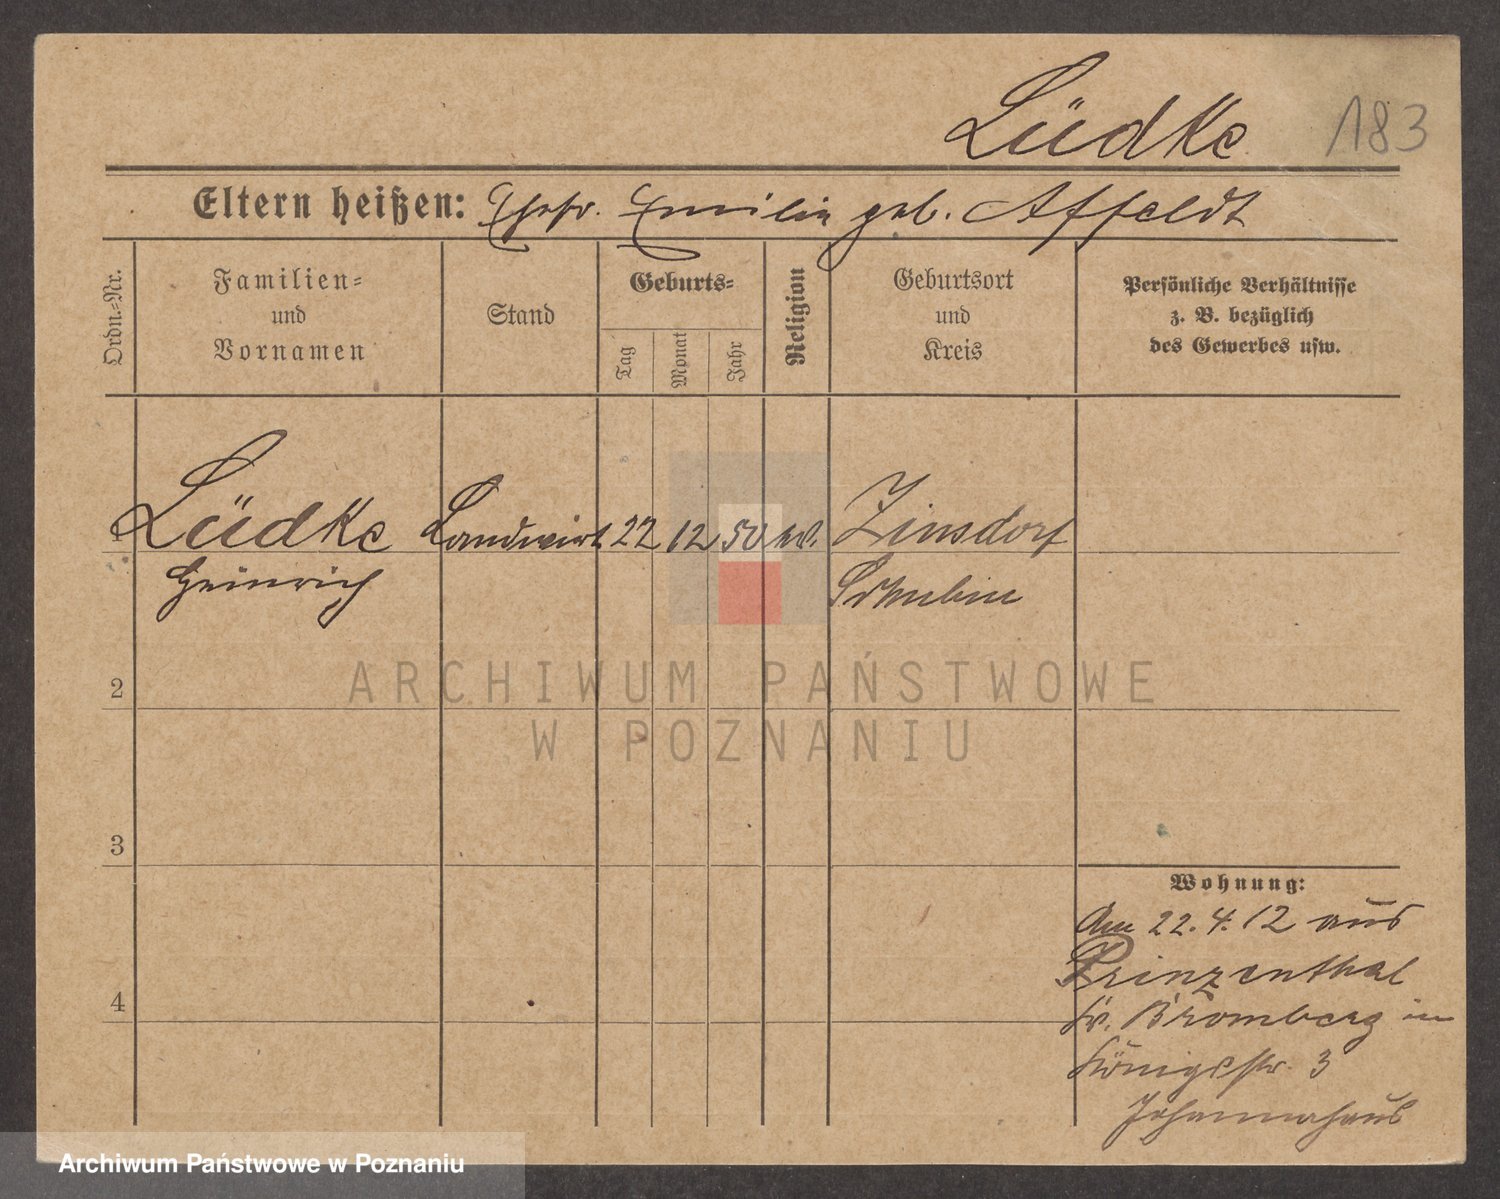 Lüdke 183
Eltern heißen: Ehefr. Emilie geb. Affeldt
Ordn.=Nr.
Familien=
und
Vornamen
Stand
Geburts=
Tag
Monat
Jahr
Religion
Geburtsort
und
Kreis
Persönliche Verhältnisse
z. B. bezüglich
des Gewerbes usw.
1 Lüdke Landwirt 22 12 50 Zinsdorf
Heinrich Schubin
ARCHIWUM PAŃSTWOWE
2
W POZNANIU
3
Wohnung:
Am 22.4.12 aus
Prinzenthal
4 Kr. Bromberg in
Königstr. 3
Johannahaus
Archiwum Państwowe w Poznaniu